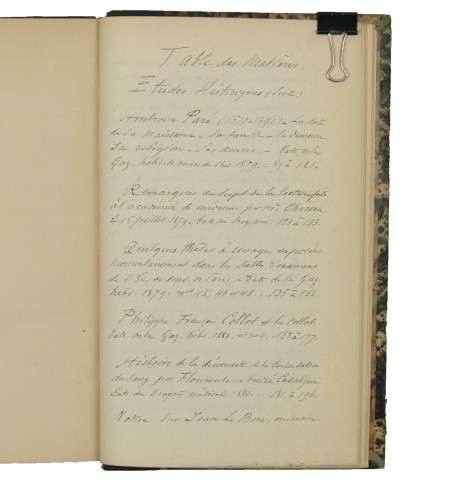 Table des Matières.
Etudes Historiques (Suite)
Ambroise Paré (1510-1590) - La date
de sa Naissance - Sa famille - Sa demeure
Sa religion - Ses œuvres - Extr. de la
Gaz. hebd. de médecine 1879 - 89 à 121.
Remarques au sujet de la lecture faite
à l'académie de médecine par Mr. Chereau
le 15 juillet 1879. Extr. du Prog. méd. 123 à 133.
Quelques Thèses à image exposées
momentanément dans les Salles d'examens
de l'Ec. de Méd. de Paris - Extr. de la Gaz.
hebd. 1879. nos 45, 46 et 48 ... 135 à 162
Philippe, François Collot et les Collot.
Extr. de la Gaz. hebd. 1880. 163 à 177
Histoire de la découverte de la Circulation
du Sang par Flourens - André Césalpin.
Extr. du Progrès médical 1880. ... 181 à 196.
Notice sur Jean Le Bon, médecin